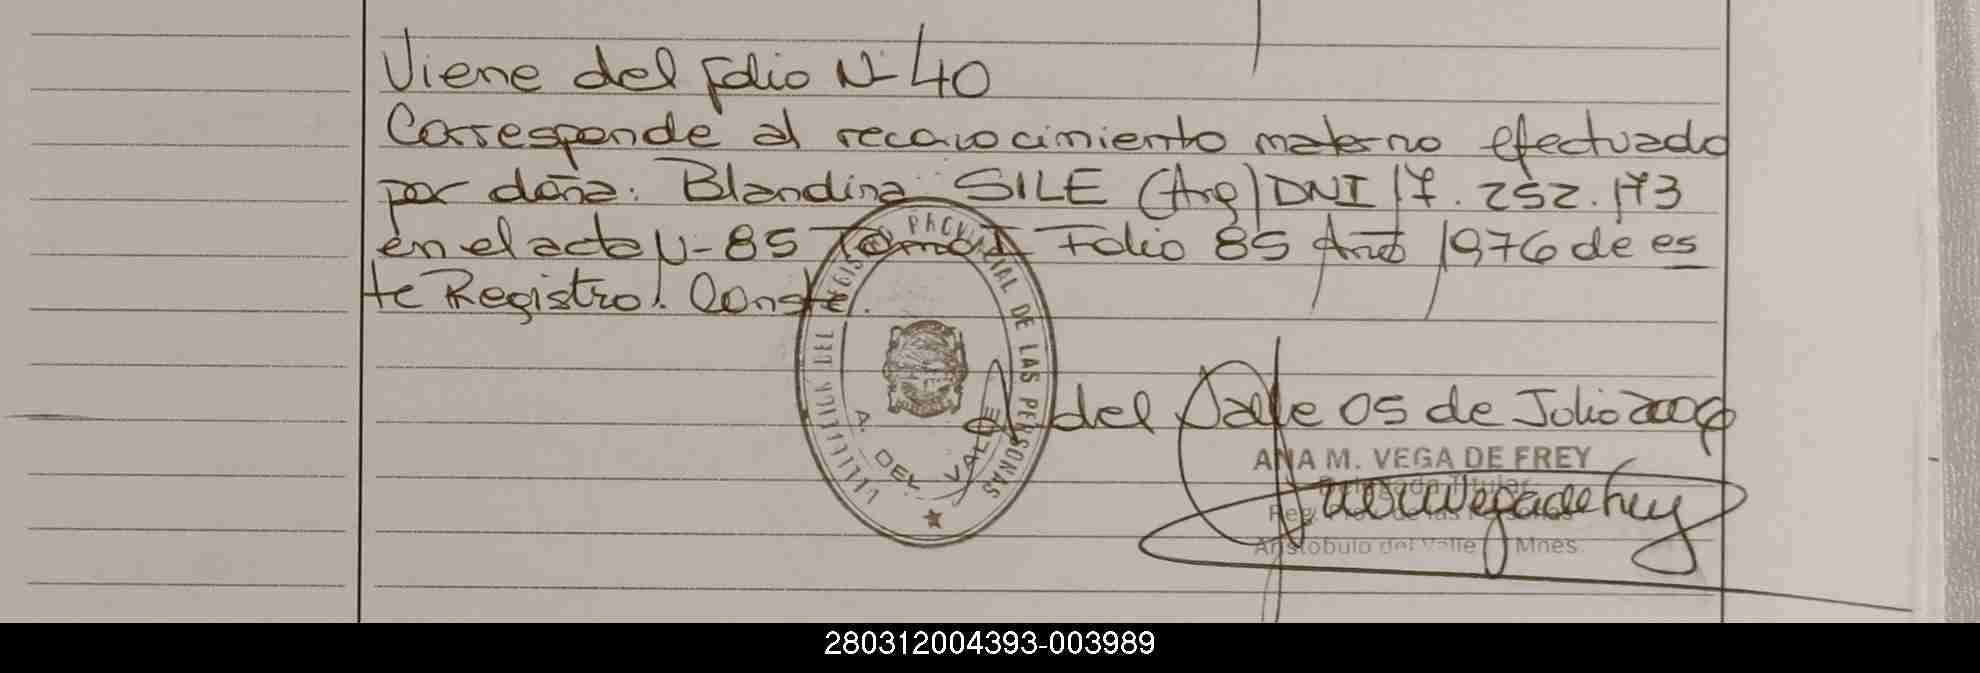 Viene del folio Nº 40
Corresponde al reconocimiento materno efectuado
por doña: Blandina SILE (Arg) DNI 17.252.173
en el acta Nº 85 Tomo I Folio 85 Año 1976 de es
te Registro. Conste.
A del Valle 05 de Julio
PROVINCIAL DE LAS PERSONAS
A. DEL VALLE
ANA M. VEGA DE FREY
Delegada Titular
Reg. Prov. de las Personas
Aristobulo del Valle Mnes.
280312004393-003989